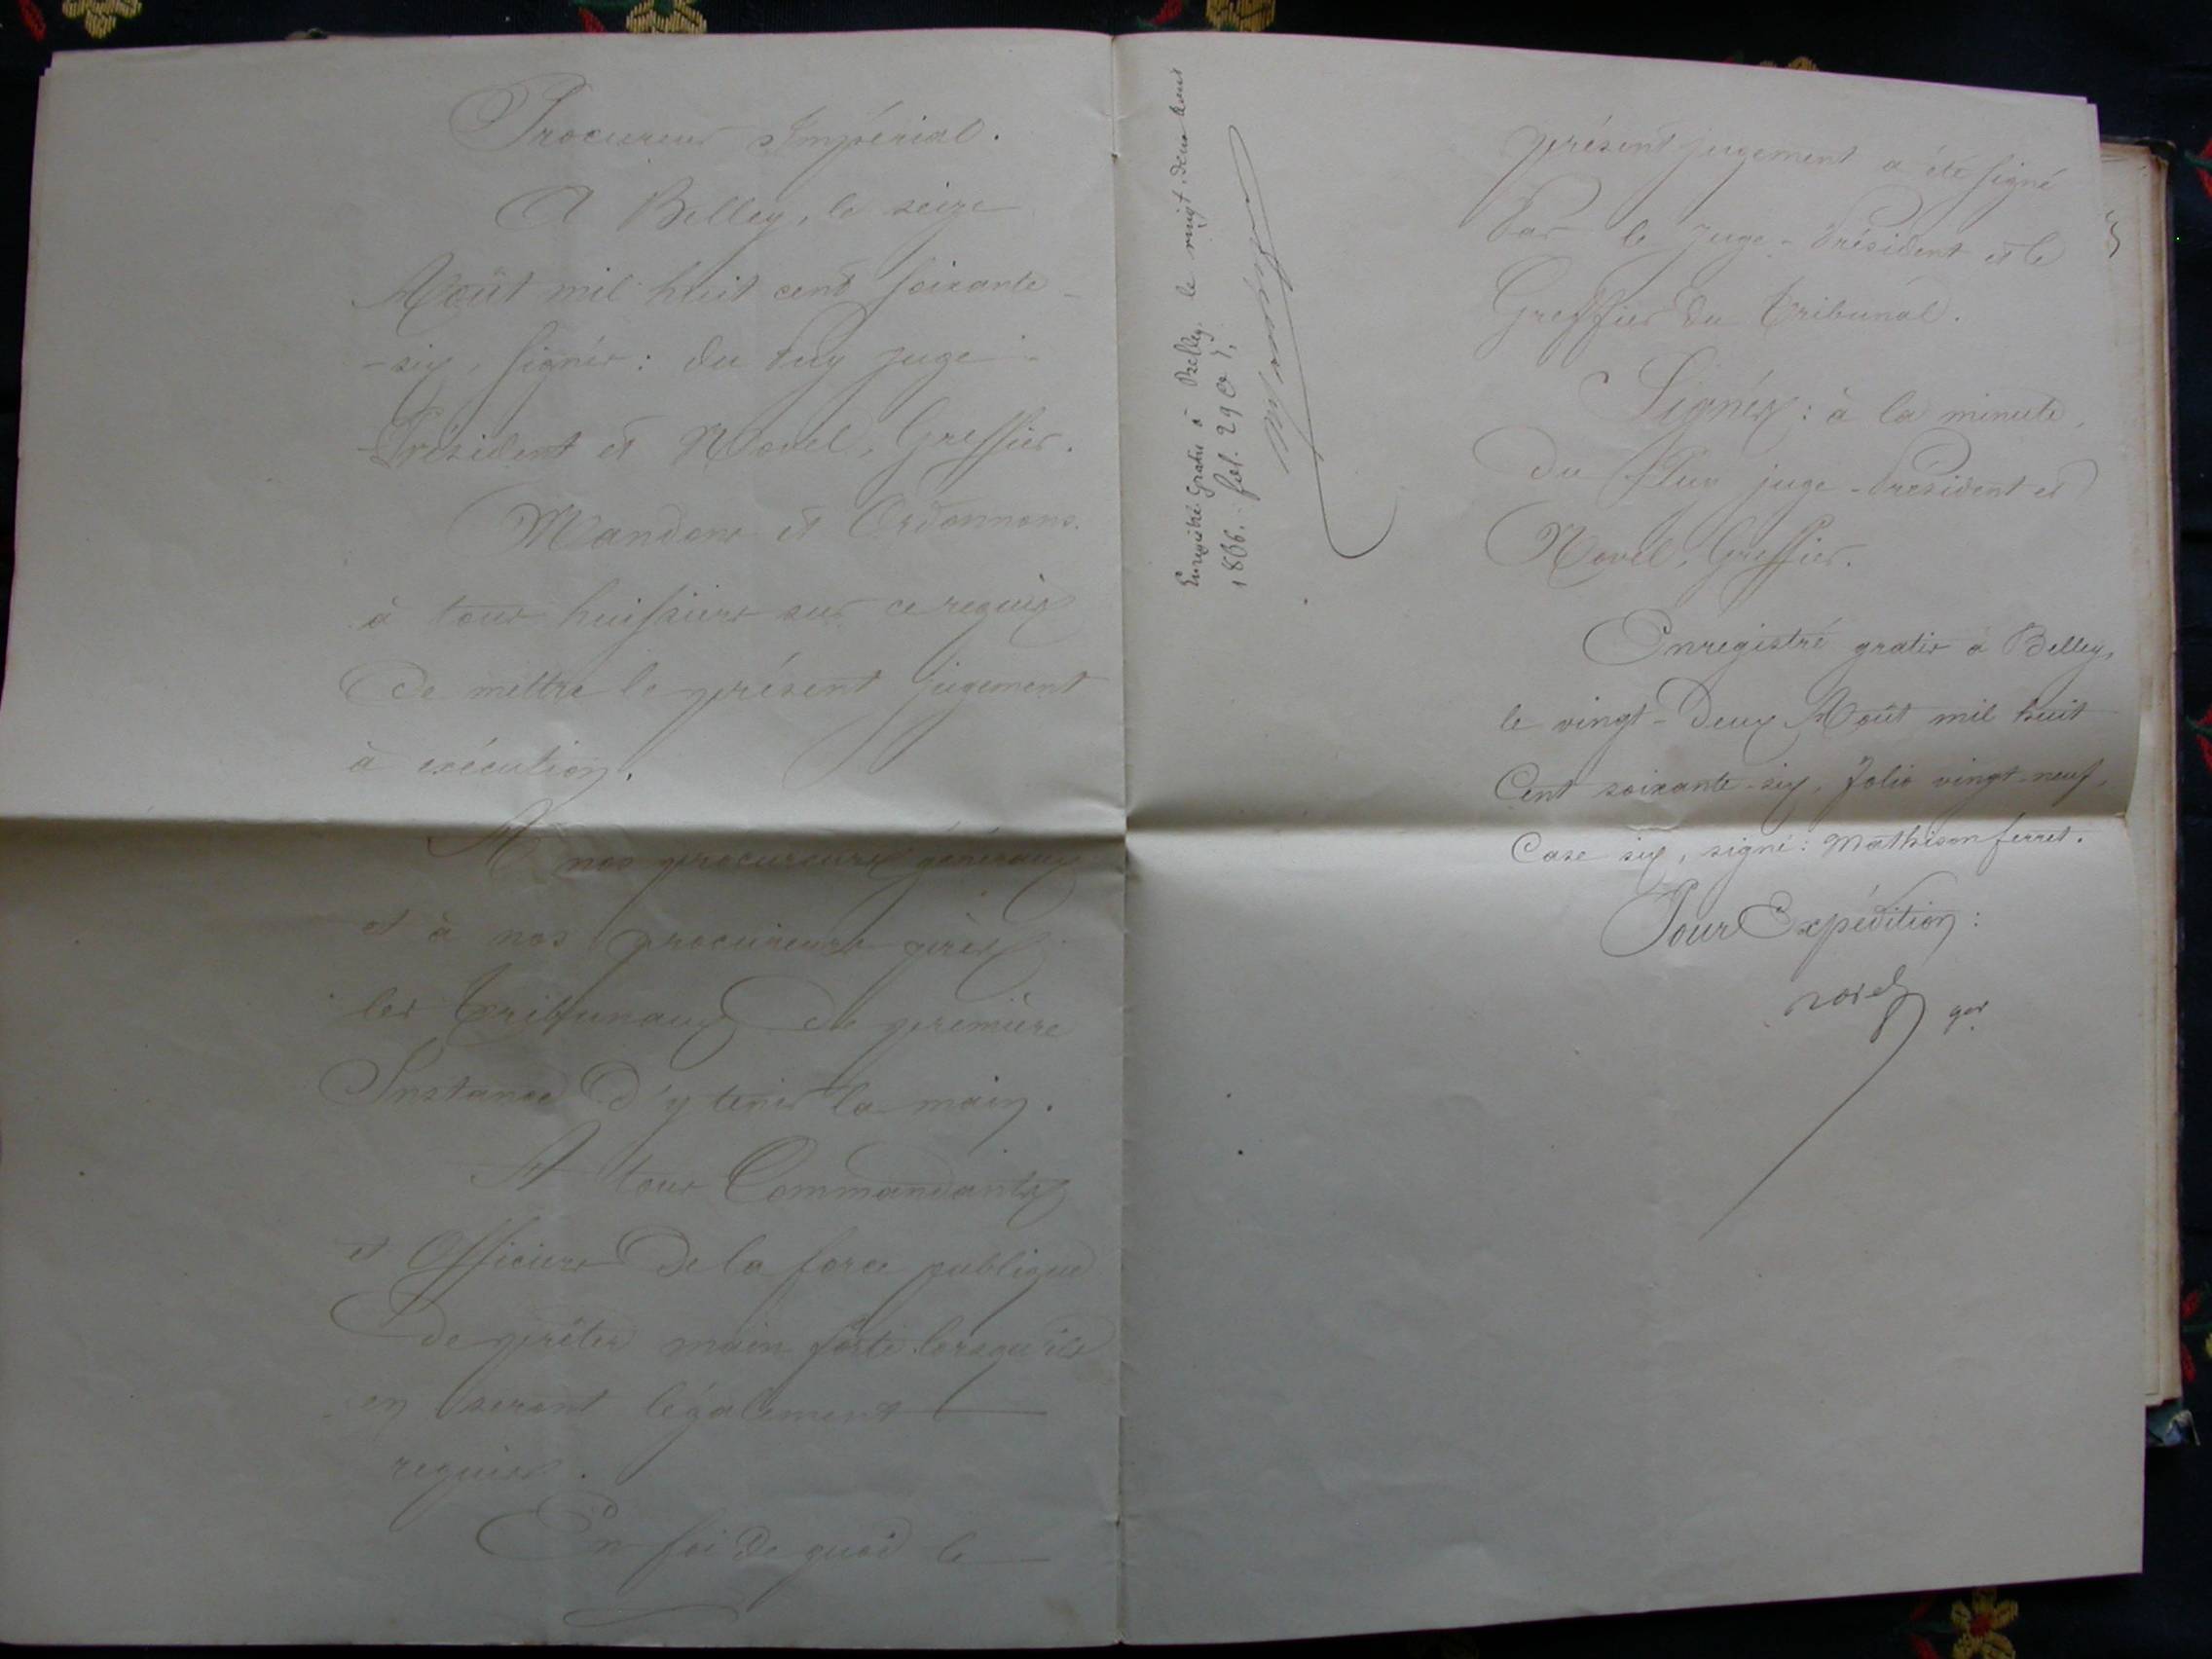 Procureur Impérial.
A Belley, le seize
Août mil huit cent soixante-
-six, signés: du Puy juge-
Président et Novel, Greffier.
Mandons et Ordonnons
à tous huissiers sur ce requis
de mettre le présent jugement
à exécution.
A nos procureurs généraux
et à nos procureurs près
les tribunaux de première
Instance d'y tenir la main.
A tous Commandants
et Officiers de la force publique
de prêter main forte lorsqu'ils
en seront légalement
requis.
En foi de quoi le
Enregistré Gratis à Belley, le vingt-deux Août
1866. fol. 29
présent jugement a été signé
Par le Juge-Président et le
Greffier du tribunal.
Signés: à la minute,
du Puy juge-Président et
Novel, Greffier.
Enregistré gratis à Belley,
le vingt-deux Août mil huit
Cent soixante-six, folio vingt-neuf,
Case six, signé: Mathison ferret.
Pour Expédition:
Novel